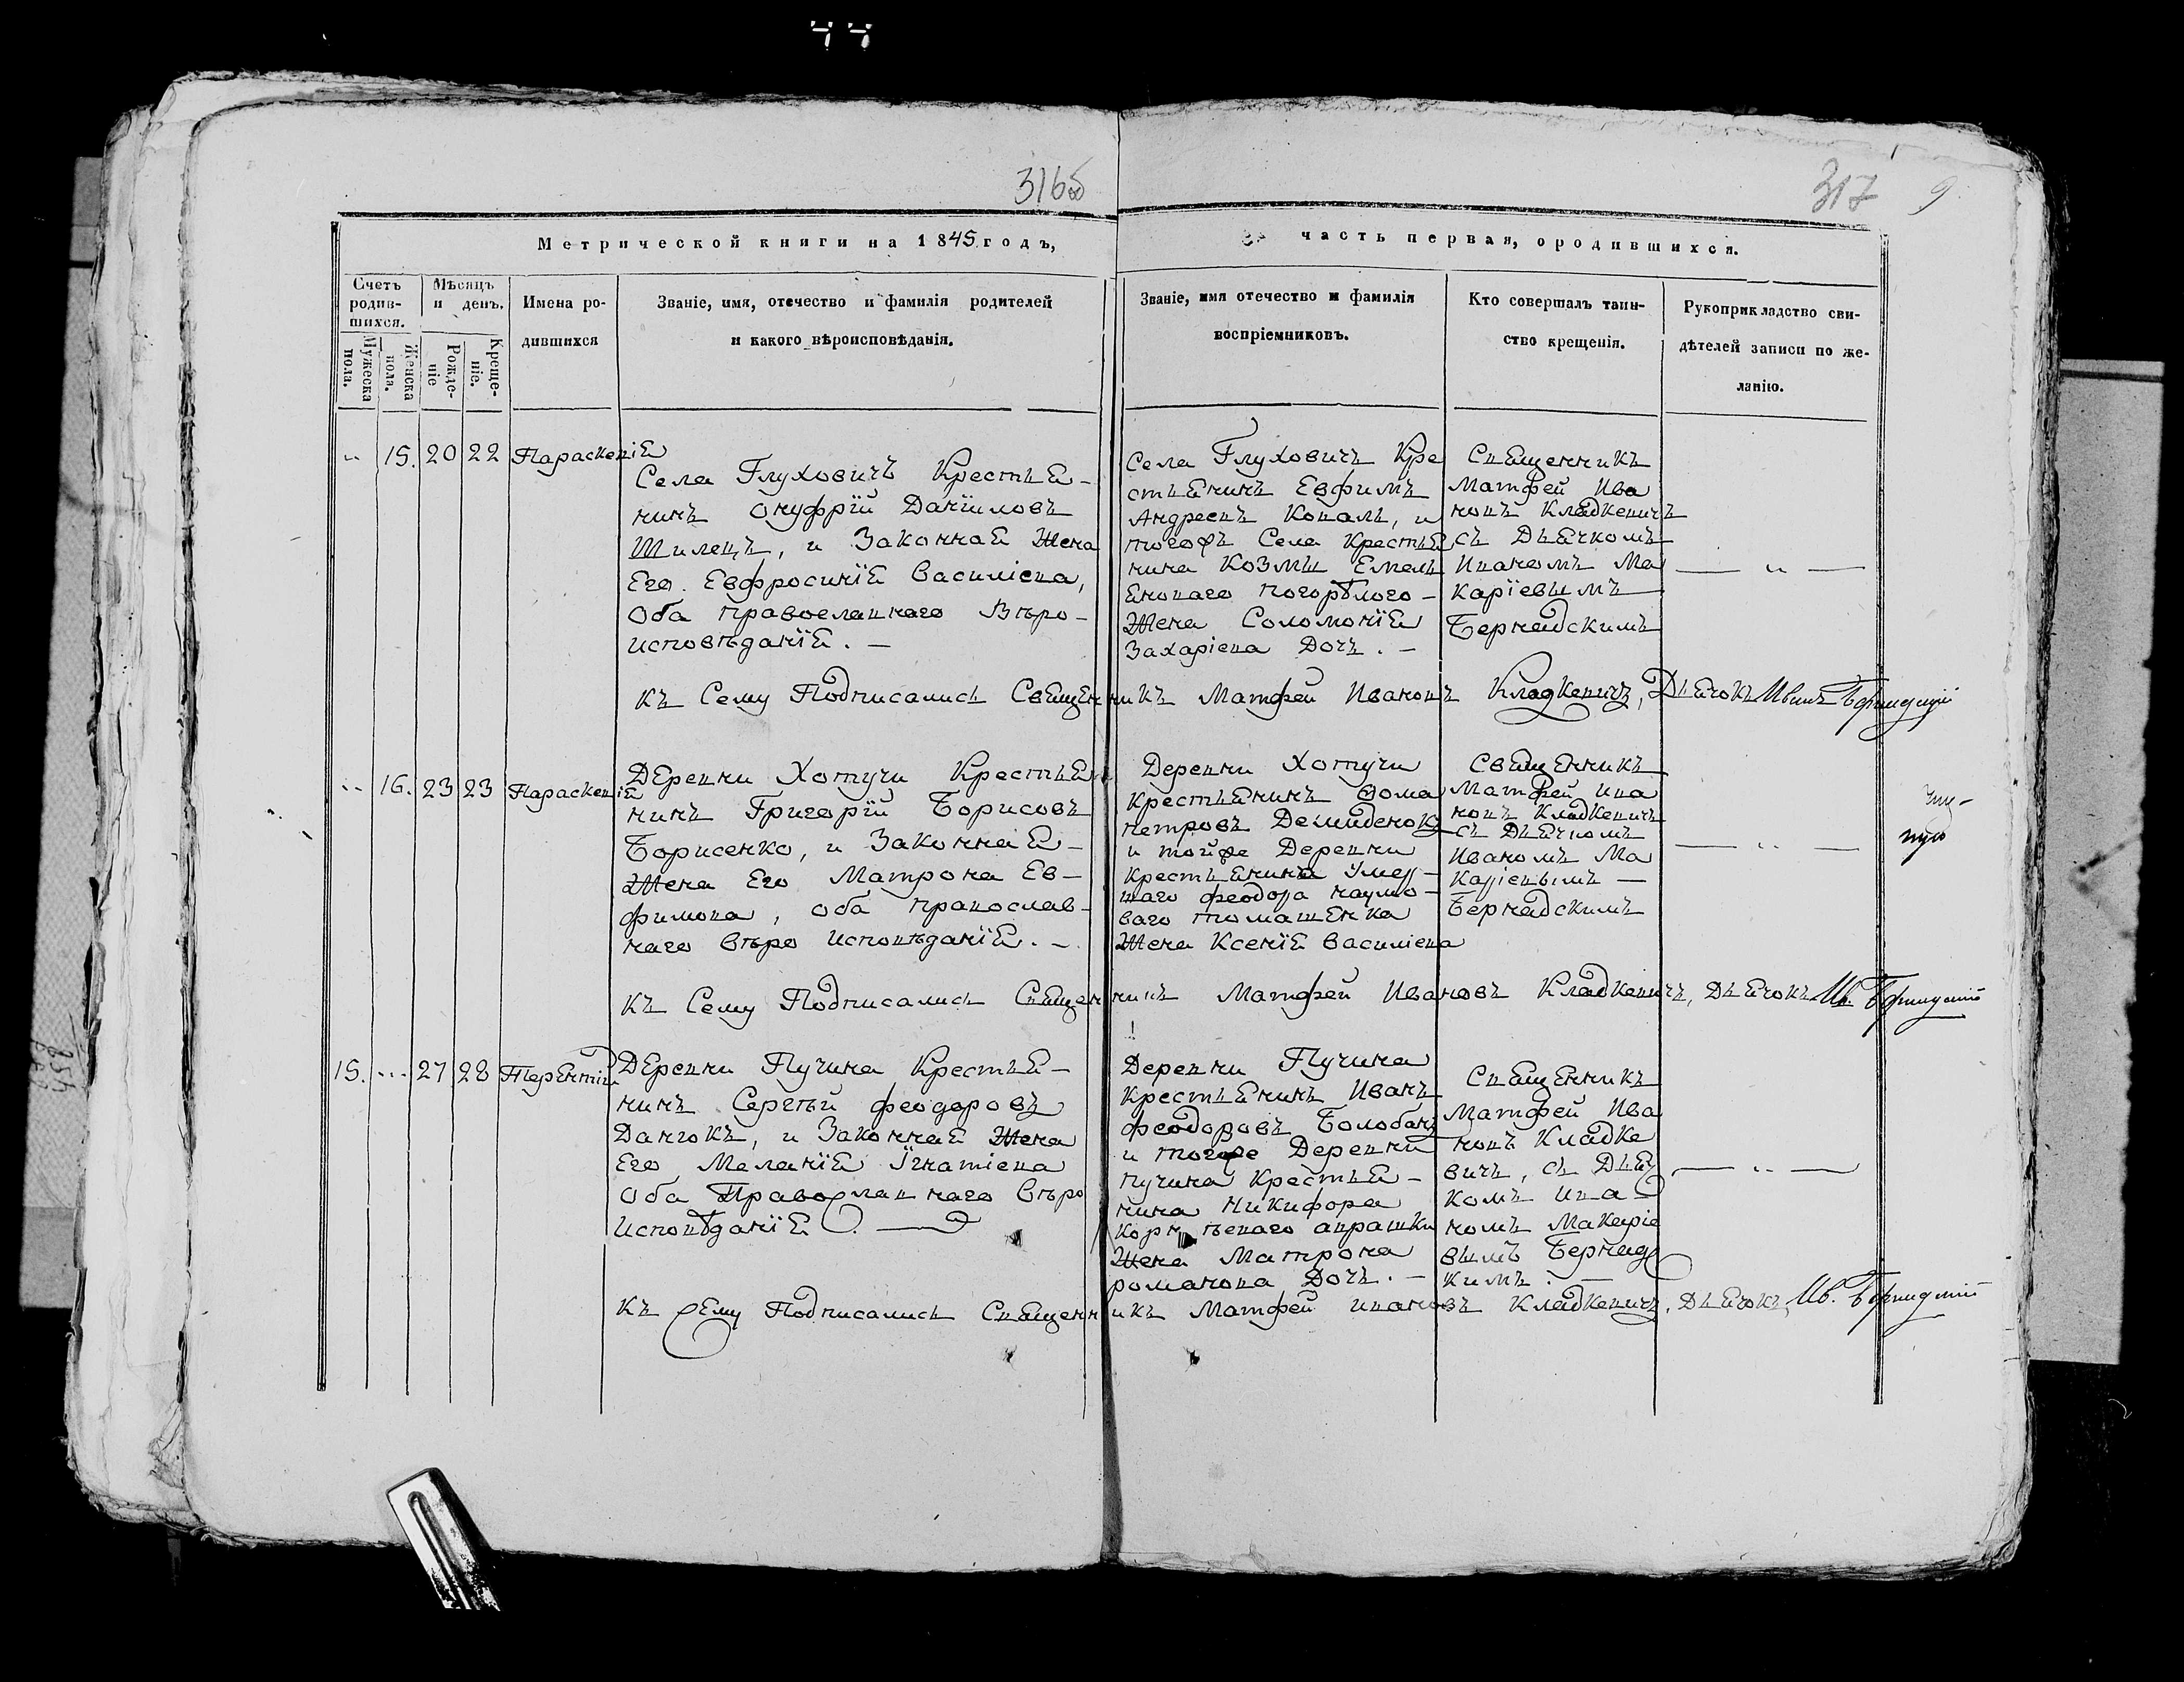 316об
317 9
Метрической книги на 1845 годъ,
часть первая, ородившихся.
Счетъ родив-шихся.
Мужеска пола.
Женска пола.
Мѣсяцъ и день.
Рожде-ніе
Креще-ніе.
Имена ро-
дившихся
Званіе, имя, отечество и фамилія родителей
и какого вѣроисповѣданія.
Званіе, имя отечество и фамилія
воспріемниковъ.
Кто совершалъ таин-
ство крещенія.
Рукоприкладство сви-
дѣтелей записи по же-
ланію.
15. 20 22 Параскевія
Села Глуховичъ Крестья-
нинъ Онуфрїй Данїиловъ
Шилецъ, и Законная Жена
Его Евфросинїя Василіева,
Оба православнаго Вѣро-
исповѣданїя. —
Села Глуховичъ Кре
стьянинъ Евфимъ
Андреевъ Ковалъ, и
тогожъ Села Крестья
нина Козмы Емель
яноваго погорѣлого —
Жена Соломонїя
Захаріева Дочъ. —
Священникъ
Матфей Ива
новъ Кладкевичъ
съ Дьячкомъ
Иваномъ Ма
карїевымъ
Бернадскимъ
— „ —
Къ Сему Подписались Священникъ Матфей Ивановъ Кладкевичъ, Дьячокъ Иванъ Бернадскій
16. 23 23 Параскевія
Деревни Хотучи Крестья
нинъ Григорїй Борисовъ
Борисенко, и Законная —
Жена Его Матрона Ев-
фимова, оба православ-
наго вѣро исповѣданїя. —
Деревни Хотучи
крестьянинъ Ѳома
петровъ Демиденокъ
и тойже Деревни
крестьянина Умер-
шаго феодора наумо-
ваго томашенка
Жена Ксенїя василіева
Священникъ
Матфей ива
новъ Кладкевичъ
съ Дьячкомъ
Иваномъ Ма
каріевымъ —
Бернадскимъ
— „ —
Къ Сему Подписались Священникъ Матфей Ивановъ Кладкевичъ, Дьячокъ Ив. Бернадскій
15. 27 28 Терентій
Деревни Пучина Крестья-
нинъ Сергѣй феодоровъ
Данокъ, и Законная Жена
Его Меланїя Їгнатіева
Оба Православнаго Вѣро
Исповѣданїя. —
Деревни Пучина
крестьянинъ Иванъ
феодоровъ Болобанъ
и тогоже Деревни
пучина крестья-
нина Никифора
корнѣеваго апрашки
Жена Матрона
романова Дочъ. —
Священникъ
Матфей Ива
новъ Кладке
вичъ, съ Дья
комъ ива
номъ Макаріе
вымъ Бернадс
кимъ. —
— „ —
Къ Сему Подписались Священникъ Матфей ивановъ Кладкевичъ, Дьячокъ, Ив. Бернадскій